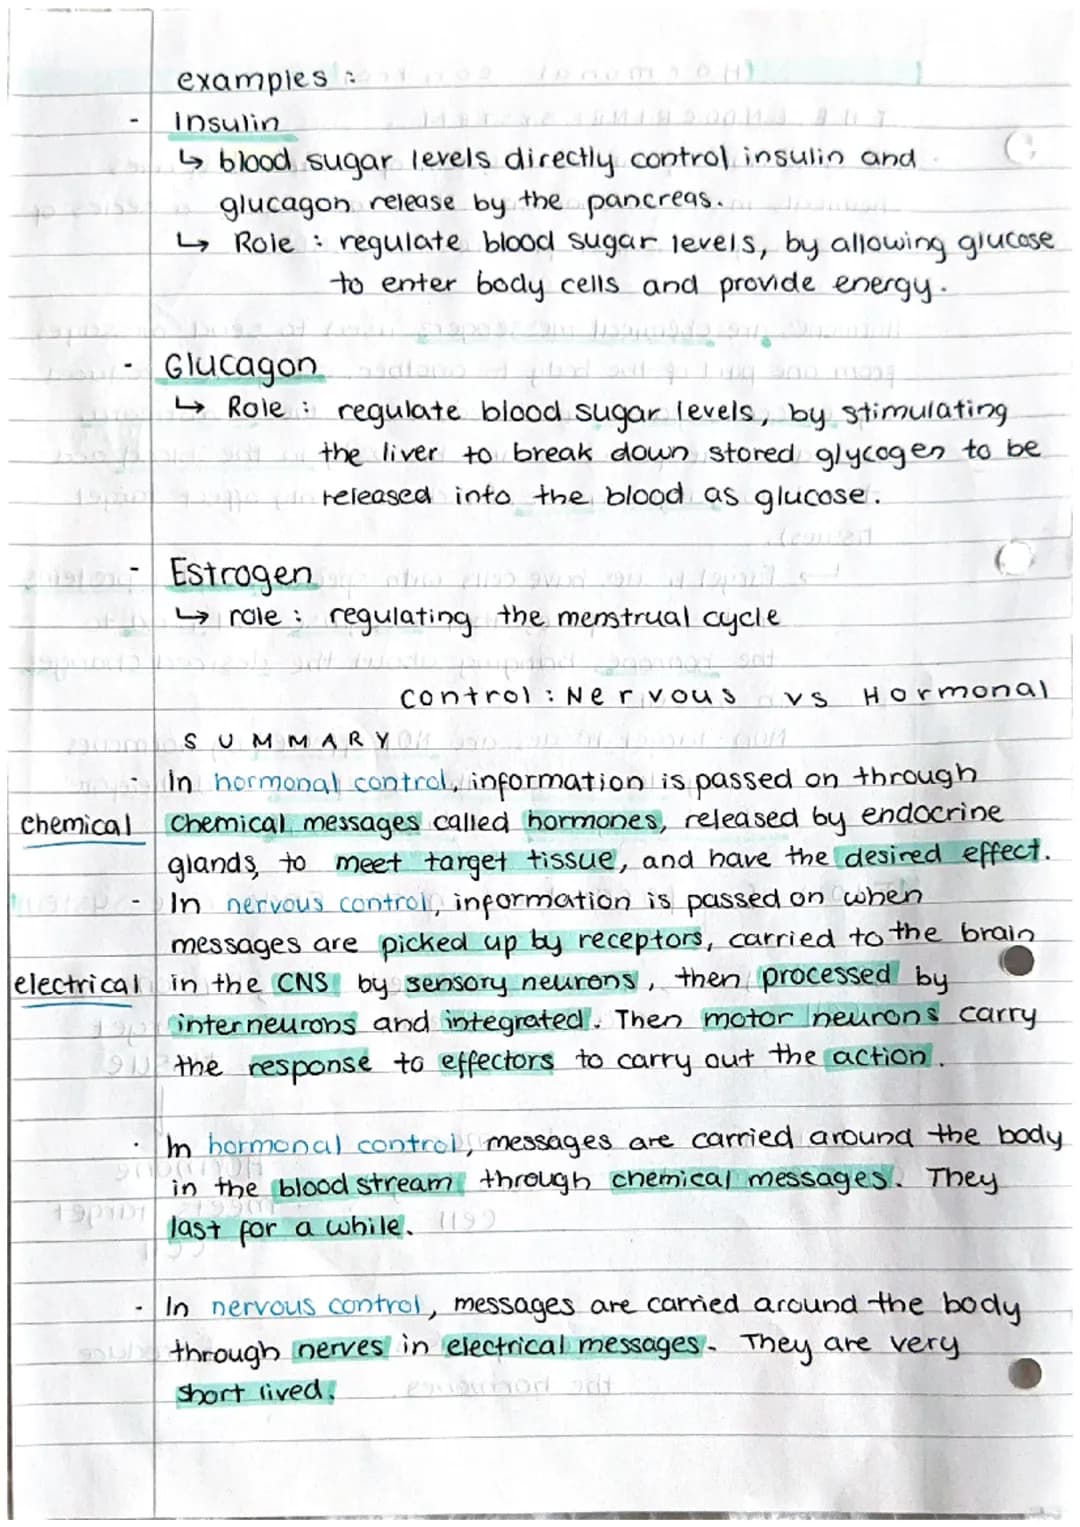 examples :
- Insulin
↳ blood sugar levels directly control insulin and
glucagon release by the pancreas.
↳ Role : regulate blood sugar levels, by allowing glucose
to enter body cells and provide energy.
- Glucagon
↳ Role : regulate blood sugar levels, by stimulating
the liver to break down stored glycogen to be
released into the blood as glucose.
- Estrogen
↳ role : regulating the menstrual cycle
control : Nervous vs Hormonal
SUMMARY
- In hormonal control, information is passed on through
chemical chemical messages called hormones, released by endocrine
glands, to meet target tissue, and have the desired effect.
- In nervous control, information is passed on when
messages are picked up by receptors, carried to the brain
electrical in the CNS by sensory neurons, then processed by
interneurons and integrated. Then motor neurons carry
the response to effectors to carry out the action.
- In hormonal control, messages are carried around the body
in the blood stream through chemical messages. They
last for a while.
- In nervous control, messages are carried around the body
through nerves in electrical messages. They are very
short lived.